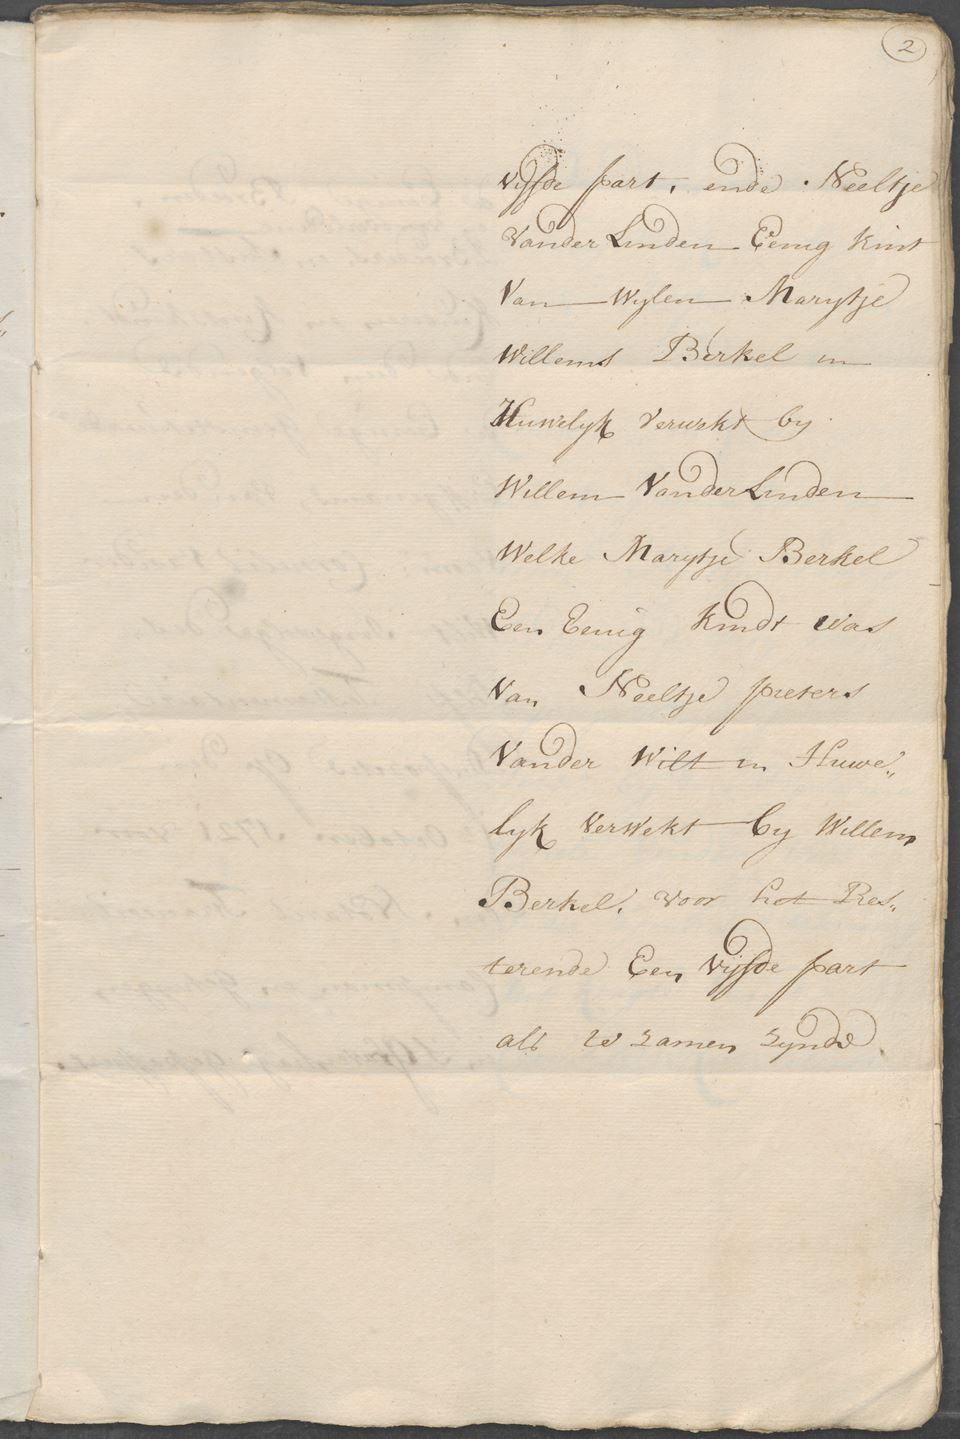 2
vyfde part, ende Neeltje
vander Linden Eenig kint
van wylen Marytje
Willems Berkel in
Huwelyk verwekt by
Willem vander Linden
Welke Marytje Berkel
Een Eenig kindt was
van Neeltje pieters
vander Wilt in Huwe„
lyk verwekt by Willem
Berkel, voor het Res„
terende Een vyfde part
als te zamen zynde